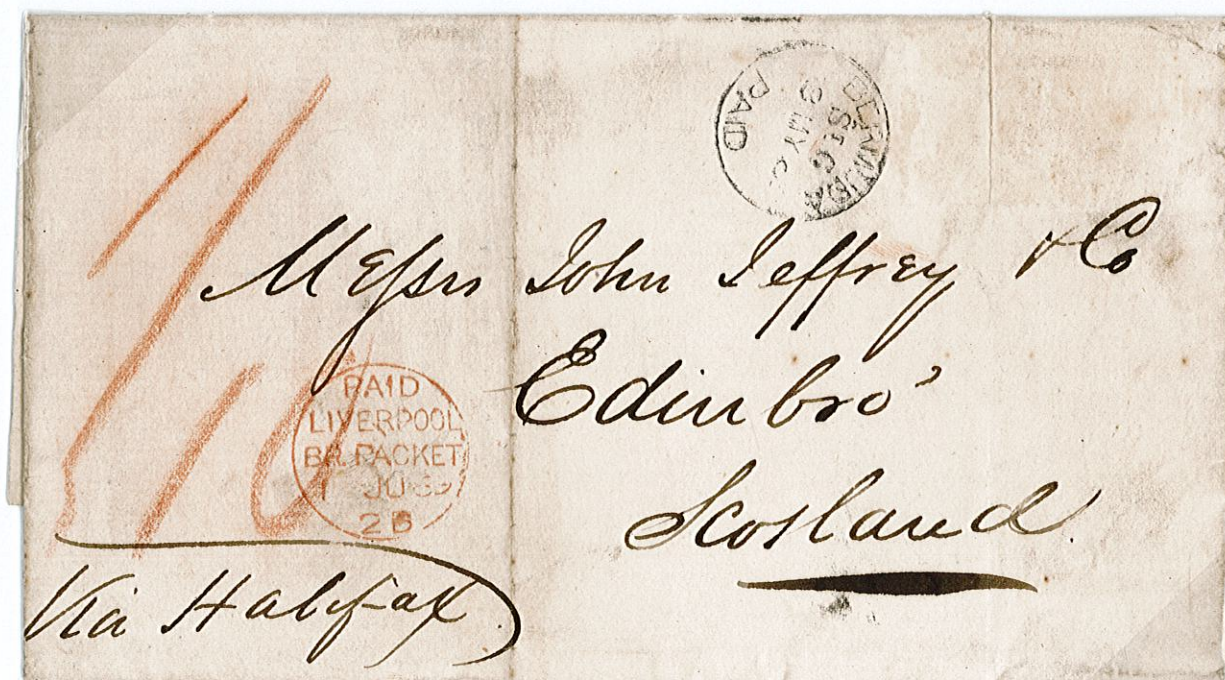 BERMUDA
ST G
PAID
Messrs John Jeffrey & Co
Edinbro'
Scotland
PAID
LIVERPOOL
BR. PACKET
2B
Via Halifax